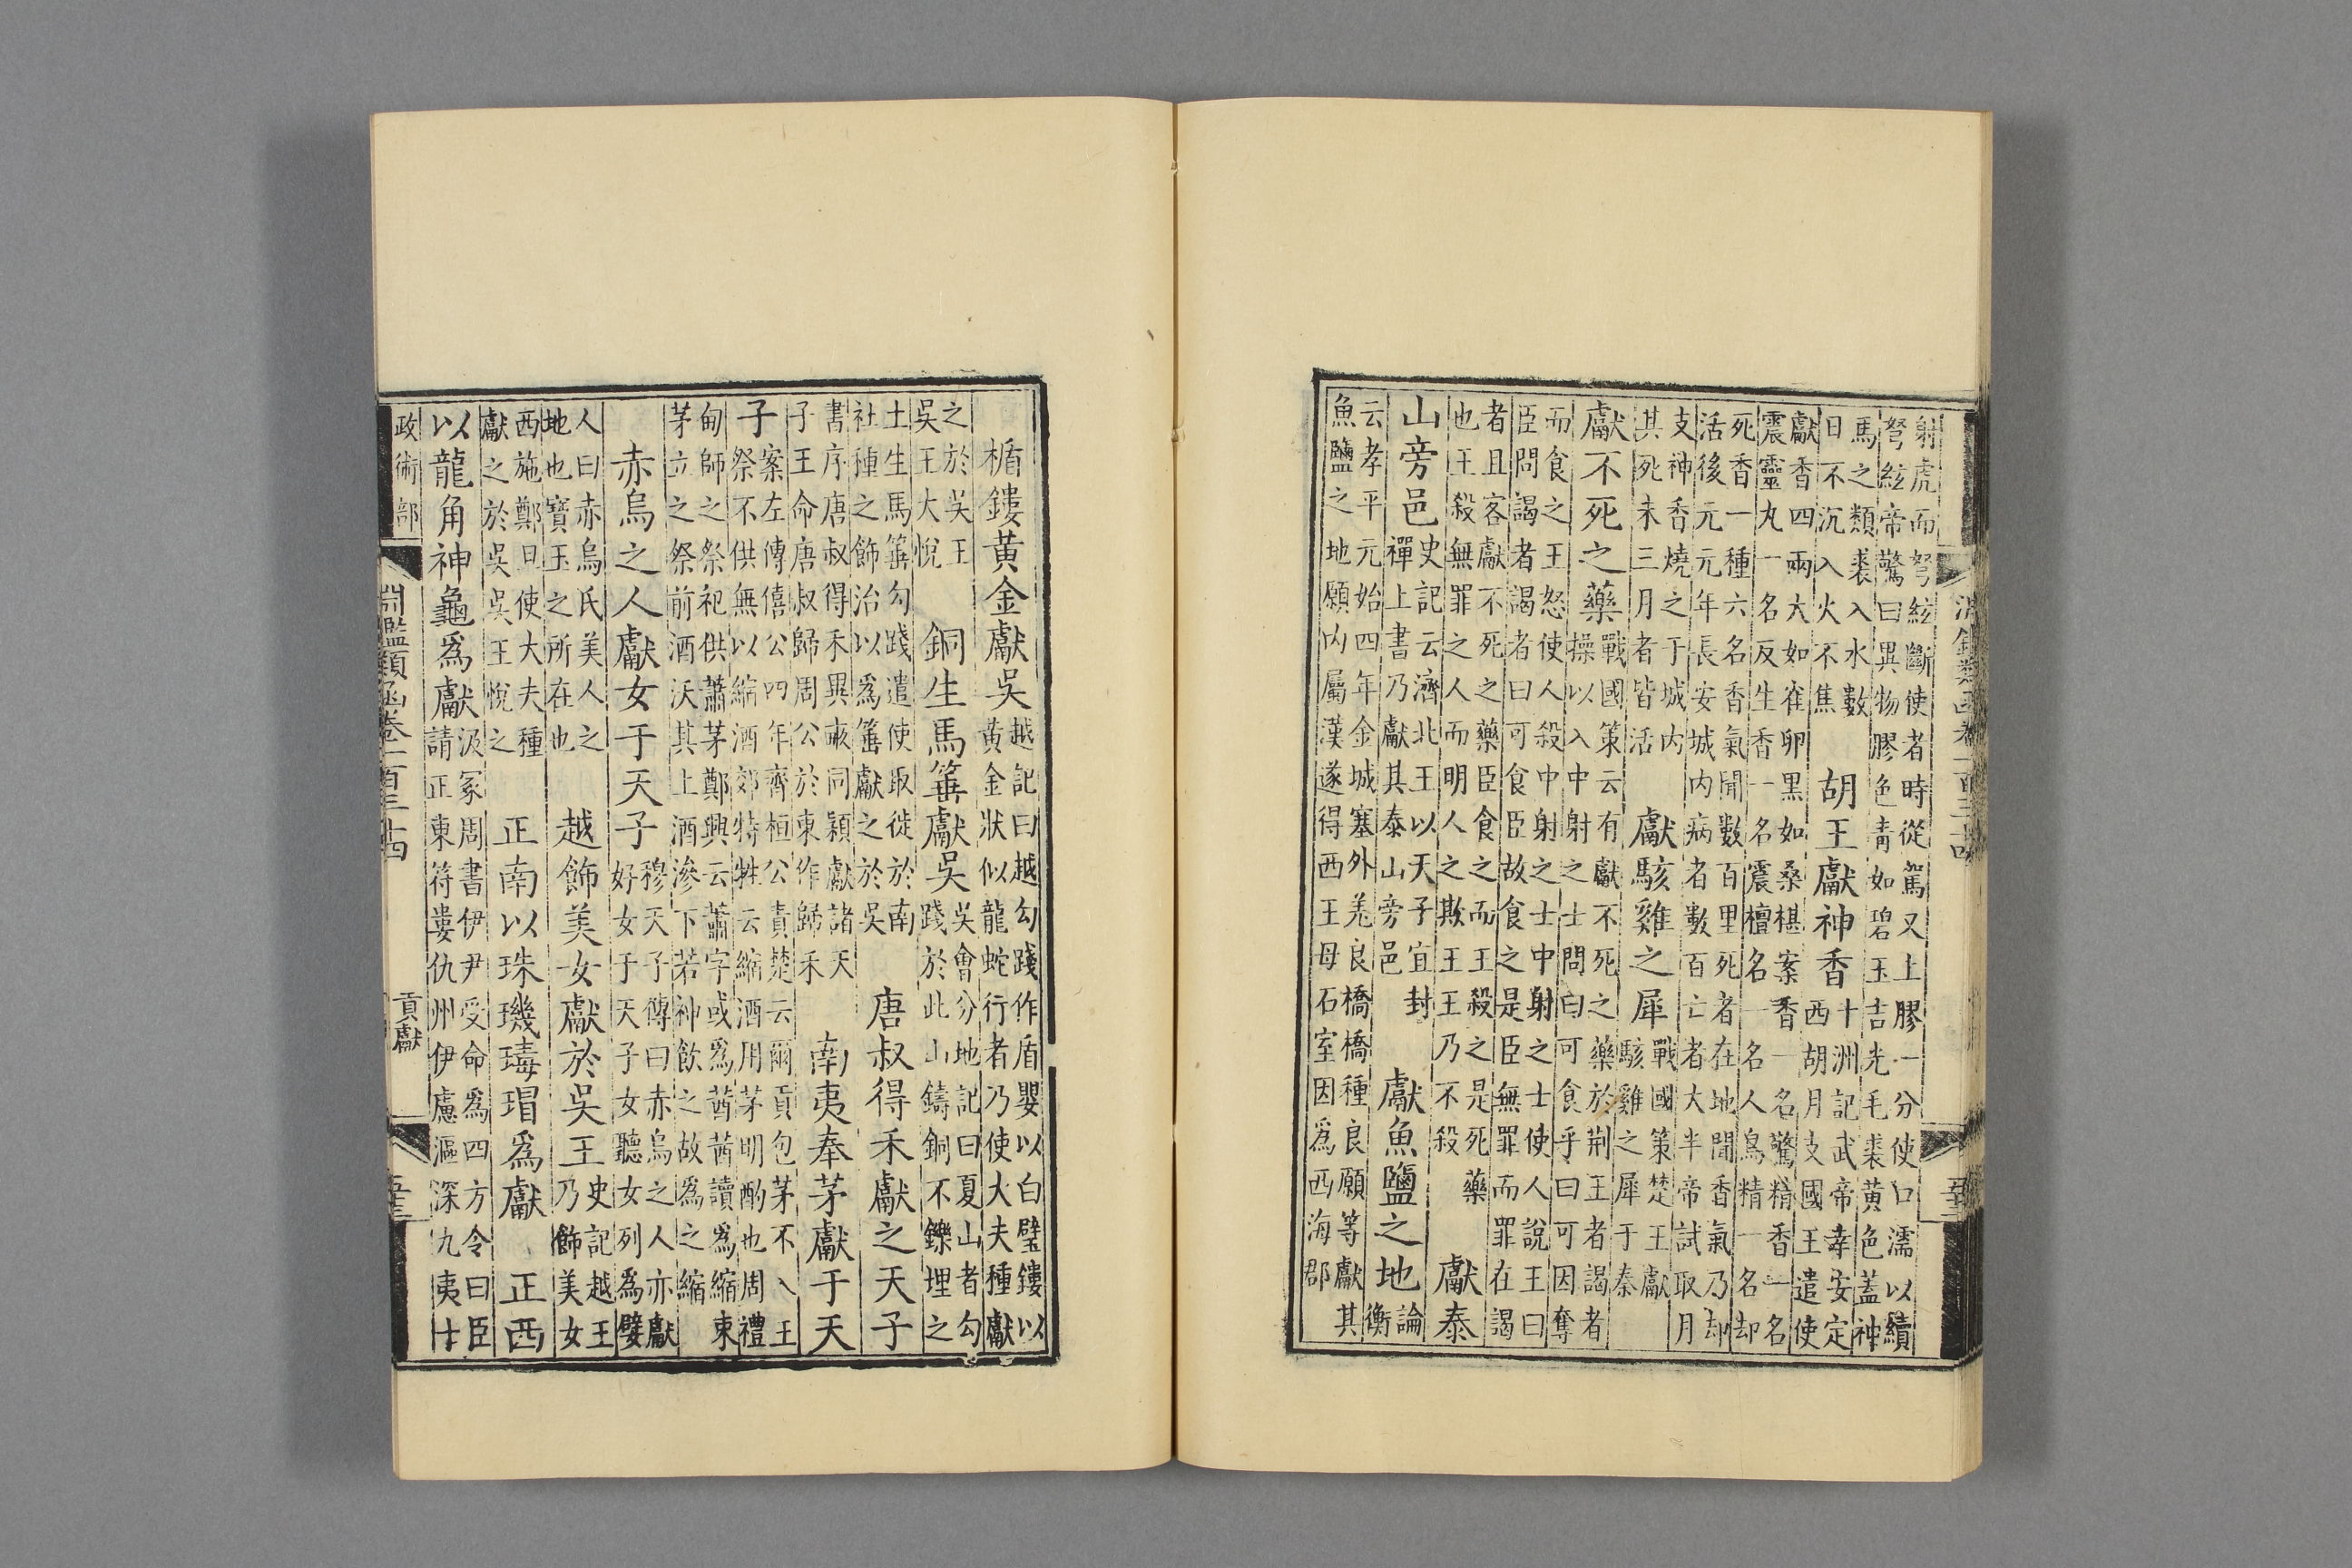 射虎而弩絃斷使者時從駕又上膠一分使口濡以續
弩絃帝驚曰異物膠色青如碧玉吉光毛裘黃色蓋神
馬之類裘入水數
日不沉入火不焦
胡王獻神香
十洲記武帝幸安定
西胡月支國王遣使
獻香四兩大如雀卵黑如桑椹案香一名驚精香一名
震靈丸一名反生香一名震檀名一名人鳥精一名却
死香一種六名香氣聞數百里死者在地聞香氣乃却
活後元元年長安城內病者數百亡者大半帝試取月
支神香燒之于城內
其死未三月者皆活
獻駭雞之犀
戰國策楚王獻
駭雞之犀于秦
獻不死之藥
戰國策云有獻不死之藥於荊王者謁者
操以入中射之士問曰可食乎曰可因奪
而食之王怒使人殺中射之士中射之士使人說王曰
臣問謁者謁者曰可食臣故食之是臣無罪而罪在謁
者且客獻不死之藥臣食之而王殺之是死藥
也王殺無罪之人而明人之欺王王乃不殺
獻泰
山旁邑
史記云濟北王以天子宜封
禪上書乃獻其泰山旁邑
獻魚鹽之地
論
衡
云孝平元始四年金城塞外羌良橋橋種良願等獻其
魚鹽之地願内屬漢遂得西王母石室因爲西海郡
楯鏤黃金獻吳
越記曰越勾踐作盾嬰以白璧鏤以
黃金狀似龍蛇行者乃使大夫種獻
之於吳王
吳王大悅
銅生馬箠獻吳
吳會分地記曰夏山者勾
踐於此山鑄銅不鑠埋之
土生馬箠勾踐遣使取徙於南
社種之飾治以爲箠獻之於吳
唐叔得禾獻之天子
書序唐叔得禾異畝同穎獻諸天
子王命唐叔歸周公於東作歸禾
南夷奉茅獻于天
子
案左傳僖公四年齊桓公責楚云爾貢包茅不入王
祭不供無以縮酒郊特牲云縮酒用茅明酌也周禮
甸師之祭祀供蕭茅鄭興云蕭字或爲茜茜讀爲縮束
茅立之祭前酒沃其上酒滲下若神飲之故爲之縮
赤烏之人獻女于天子
穆天子傳曰赤烏之人亦獻
好女于天子女聽女列爲嬖
人曰赤烏氏美人之
地也寶玉之所在也
越飾美女獻於吳王
史記越王
乃飾美女
西施鄭旦使大夫種
獻之於吳吳王悅之
正南以珠璣瑇瑁爲獻
正西
以龍角神龜爲獻
汲冢周書伊尹受命爲四方令曰臣
請正東符婁仇州伊慮漚深九夷十
政術部
淵鑑類函卷一百三十四
貢獻